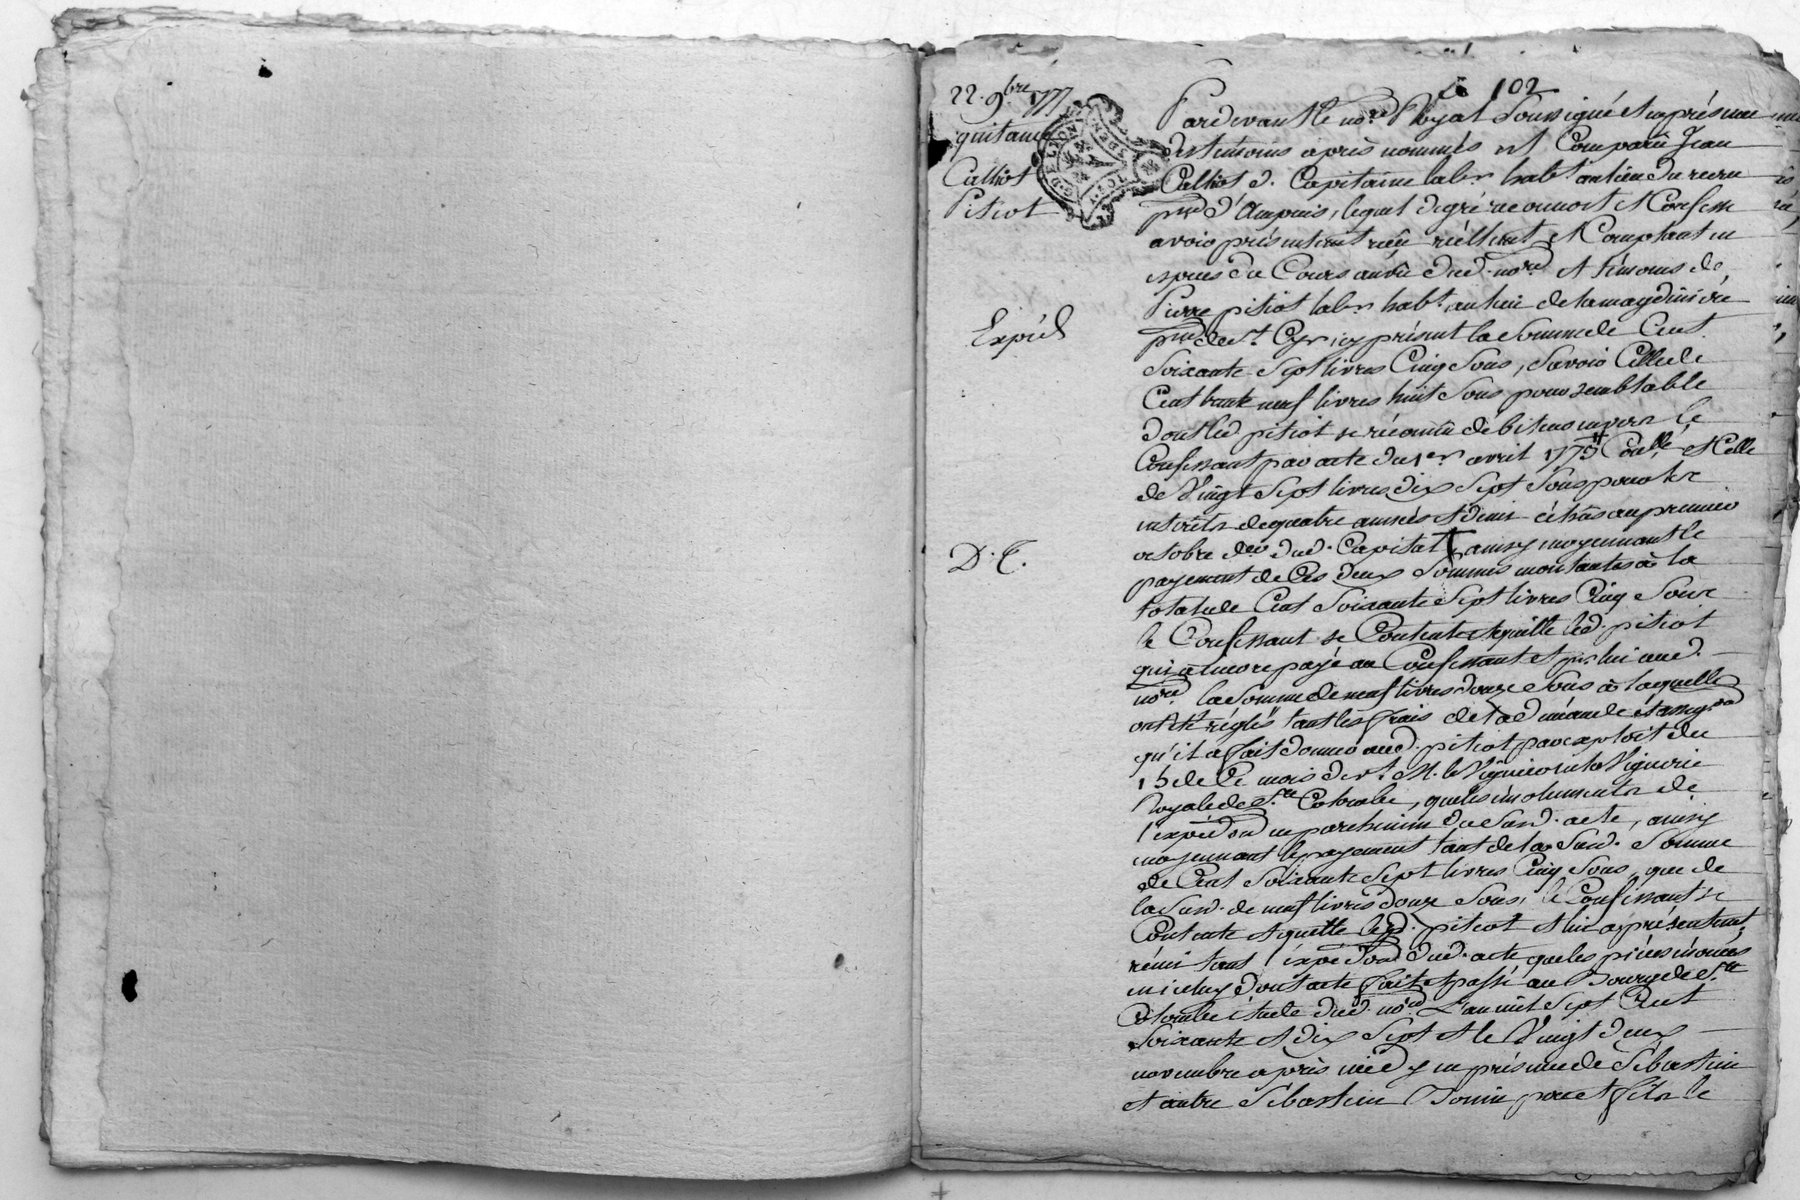 102
22. 9.bre 1777
quitance
Calliot
Pitiot
G. DE LYON
Expéd
D. C.
Pardevant le no.re Royal Soussigné et en présence
des temoins après nommés est Comparu Jean
Calliot d. Capitaine lab.r hab.t au lieu du
d'Ampuis, lequel de gré reconnoit et Confesse
avoir présentement reçû réellement et Comptant en
espèces de Cours au vû dud. no.re et témoins de
Pierre pitiot lab.r hab.t au lieu de
de S.t Cyr, icy présent la Somme de Cent
Soixante Sept livres Cinq Sous, Savoir Celle de
Cent trente neuf livres huit Sous pour semblable
dont led. pitiot se reconnu débiteur envers le
Confessant par acte du 1er avril 1773 Con.llé, et Celle
de Vingt Sept livres dix Sept Sous pour les
intérêts de quatre années et demi échûs au premier
octobre d.er dud. Capital ainsy moyennant le
payement de Ces deux Sommes montantes à la
totale de Cent Soixante Sept livres Cinq Sous
le Confessant se Contente et quitte led. pitiot
qui a encore payé au Confessant et par lui aud.
no.re la Somme de neuf livres douze Sous à laquelle
ont été réglés tant les frais de la demande et assig.on
qu'il a fait donner aud. pitiot par exploit du
15 de Ce mois dev.t M. le Viguier en la Viguerie
Royale de S.te Colombe, que les émoluments de
l'expéd.on en parchemin du Susd. acte, ainsy
moyennant le payement tant de la Susd. Somme
de Cent Soixante Sept livres Cinq Sous, que de
la Susd. de neuf livres douze Sous, le Confessant se
Contente et quitte led. pitiot et lui a présentement
rémis tant l'expéd.on dud. acte que les pièces énoncées
en icelui, dont acte fait et passé au Bourg de S.te
Colombe étude dud. no.re L'an mil Sept Cent
Soixante et dix Sept et le Vingt deux
novembre après midy en présence de Sébastien
et autre Sébastien Bonin père et fils le